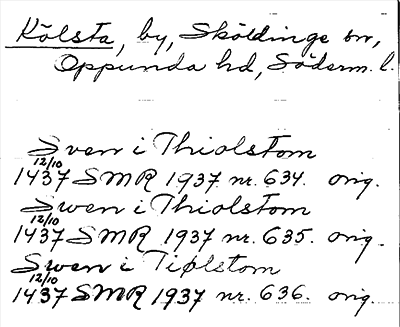 Kölsta, by, Sköldinge sn,
Oppunda hd, Söderm. l.
Sven i Thiolstom
12/10
1437 SMR 1937 nr. 634. orig.
Swen i Thiolstom
12/10
1437 SMR 1937 nr. 635. orig.
Swen i Tiplstom
12/10
1437 SMR 1937 nr. 636. orig.